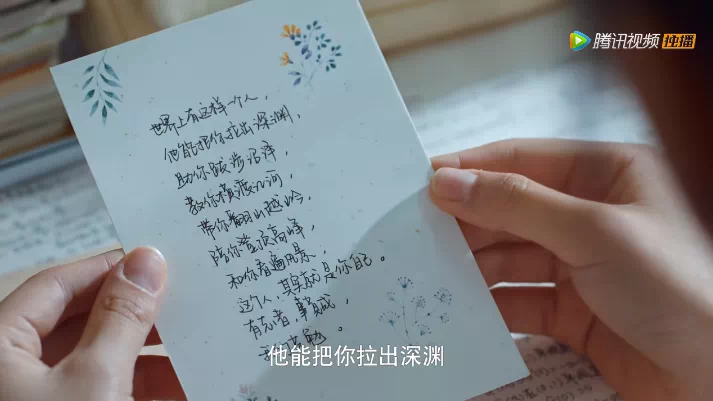 腾讯视频 独播
世界上有这样一个人，
他能把你拉出深渊，
助你跋步沼泽，
教你横渡江河，
带你翻山越岭，
陪你登顶高峰，
和你看遍风景。
这个人，其实就是你自己。
有志者，事竟成，
他能把你拉出深渊